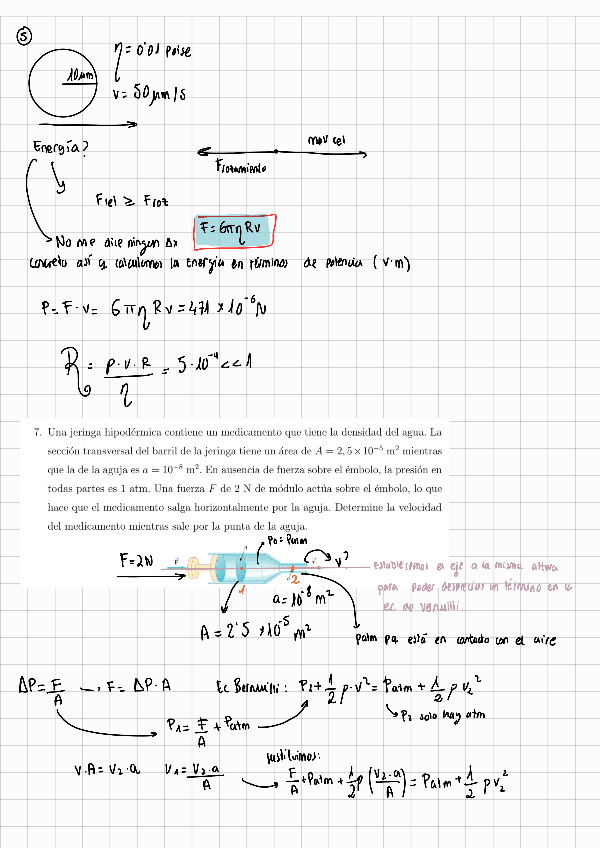 5
10 μm
η = 0'01 poise
v = 50 μm/s
Energía?
mov cel
Frozamiento
Fcel ≥ Froz
F = 6πηRv
No me dice ningun Δx
concreto así q calculamos la Energía en términos de potencia (v·m)
P = F·v = 6πηRv = 471 × 10⁻⁶ N
R = ρ·v·R / η = 5·10⁻⁴ << 1
7. Una jeringa hipodérmica contiene un medicamento que tiene la densidad del agua. La
sección transversal del barril de la jeringa tiene un área de A = 2,5 × 10⁻⁵ m² mientras
que la de la aguja es a = 10⁻⁸ m². En ausencia de fuerza sobre el émbolo, la presión en
todas partes es 1 atm. Una fuerza F de 2 N de módulo actúa sobre el émbolo, lo que
hace que el medicamento salga horizontalmente por la aguja. Determine la velocidad
del medicamento mientras sale por la punta de la aguja.
P0 = Patm
F = 2N
v?
1
2
Establecemos el eje a la misma altura
para poder despreciar un término en la
ec. de Vernuilli.
a = 10⁻⁸ m²
A = 2'5 × 10⁻⁵ m²
Patm pq está en contacto con el aire
ΔP = F/A → F = ΔP·A
Ec Bernuilli: P1 + 1/2 ρ·v² = Patm + 1/2 ρ v2²
P2 solo hay atm
P1 = F/A + Patm
sustituimos:
v·A = v2·a
V1 = V2·a / A
F/A + Patm + 1/2 ρ (v2·a / A) = Patm + 1/2 ρ v2²